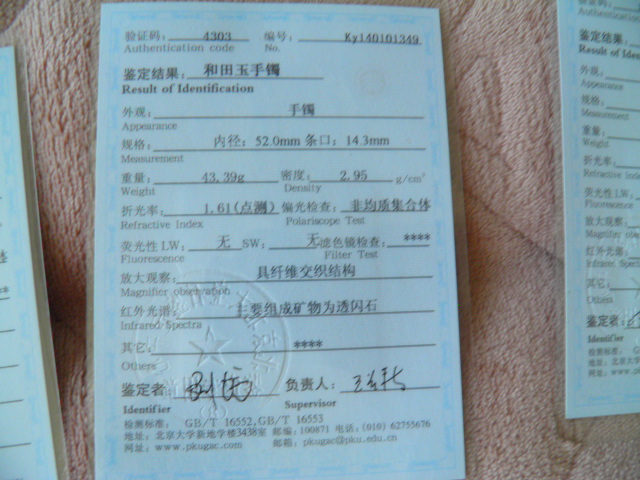 验证码: 4303 编号: Ky140101349
Authentication code No.
鉴定结果: 和田玉手镯
Result of Identification
外观: 手镯
Appearance
规格: 内径: 52.0mm 条口: 14.3mm
Measurement
重量: 43.39g 密度: 2.95 g/cm³
Weight Density
折光率: 1.61(点测) 偏光检查: 非均质集合体
Refractive Index Polariscope Test
荧光性 LW: 无 SW: 无 滤色镜检查: ****
Fluorescence Filter Test
放大观察: 具纤维交织结构
Magnifier observation
红外光谱: 主要组成矿物为透闪石
Infrared Spectra
其它: ****
Others
鉴定者: 负责人:
Identifier Supervisor
检测标准: GB/T 16552,GB/T 16553
地址: 北京大学新地学楼3438室 邮编: 100871 电话: (010) 62755676
网址: www.pkugac.com 邮箱: pkugac@pku.edu.cn
鉴定结果:
Result of Identi
外观:
Appearance
规格:
Measurement
重量:
Weight
折光率:
Refractive Index
荧光性 LW:
Fluorescence
放大观察:
Magnifier observ
红外光谱:
Infrared Spectra
其它:
Others
鉴定者:
Identifier
检测标准:
地址: 北京大
网址: www.p